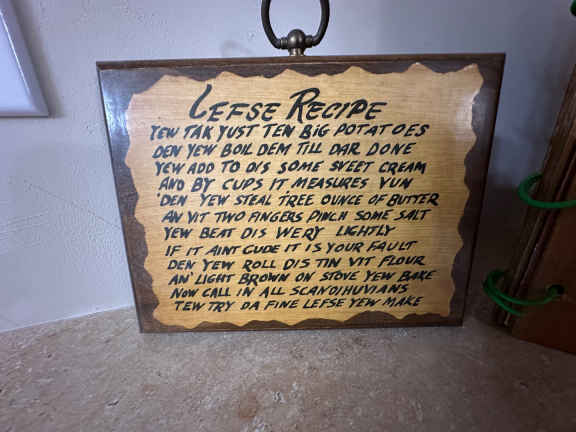 LEFSE RECIPE
YEW TAK YUST TEN BIG POTATOES
DEN YEW BOIL DEM TILL DAR DONE
YEW ADD TO DIS SOME SVEET CREAM
AND BY CUPS IT MEASURES VUN
DEN YEW STEAL TREE OUNCE OF BUTTER
AN VIT TWO FINGERS PINCH SOME SALT
YEW BEAT DIS WERY LIGHTLY
IF IT AINT GUDE IT IS YOUR FAULT
DEN YEW ROLL DIS TIN VIT FLOUR
AN' LIGHT BROWN ON STOVE YEW BAKE
NOW CALL IN ALL SCANDIHUVIANS
TEW TRY DA FINE LEFSE YEW MAKE